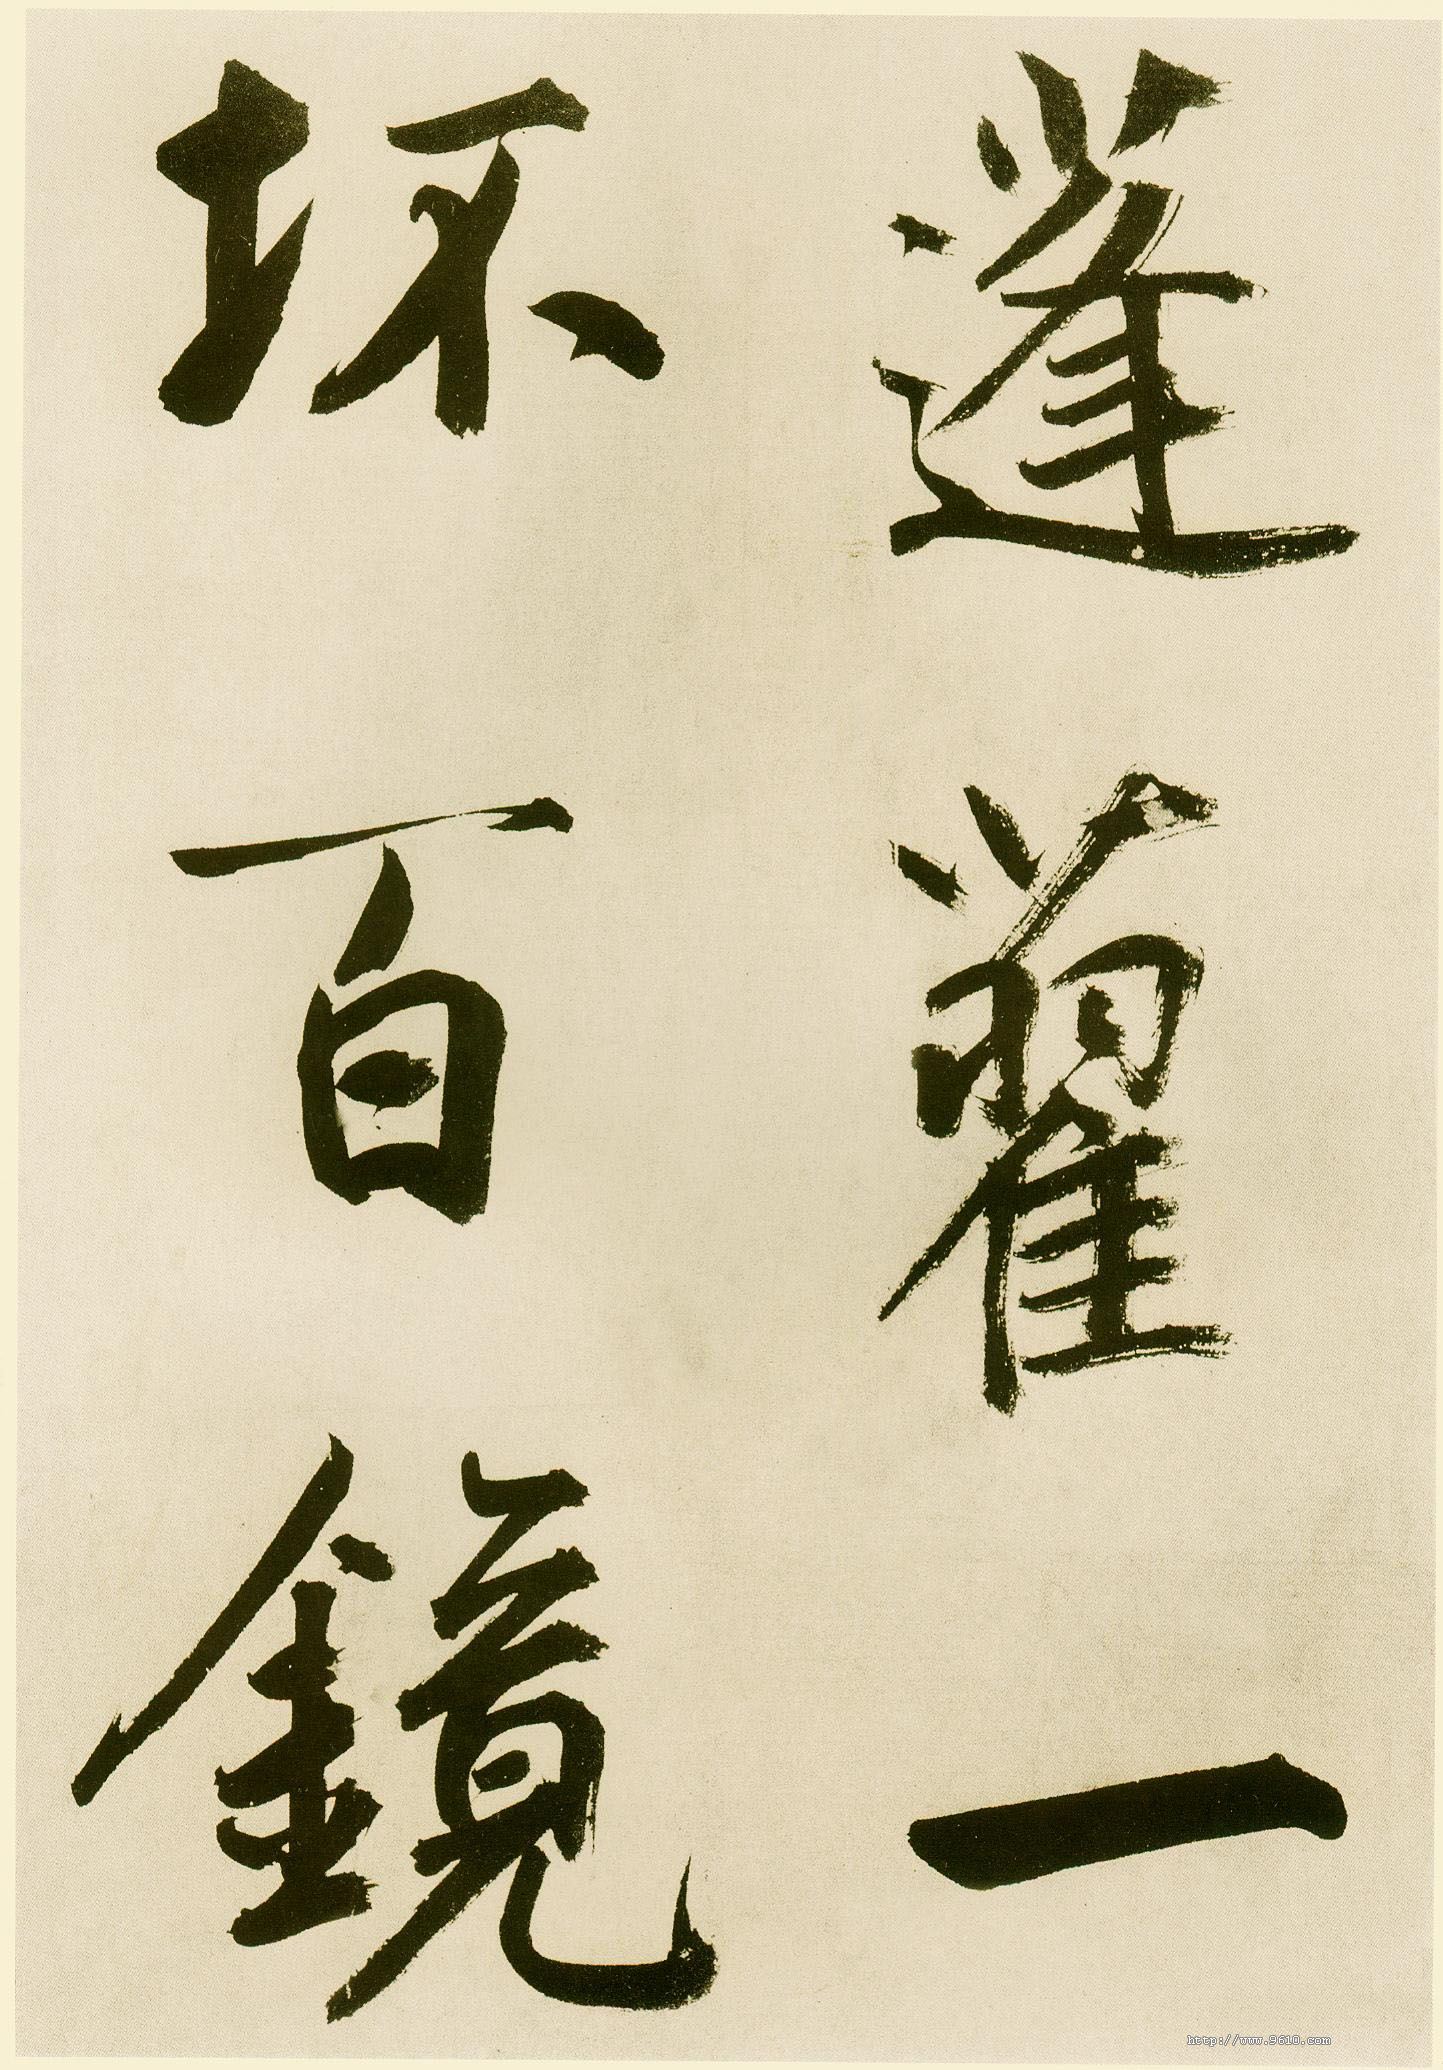 蓬藋一
坏百鏡
http://www.9610.com